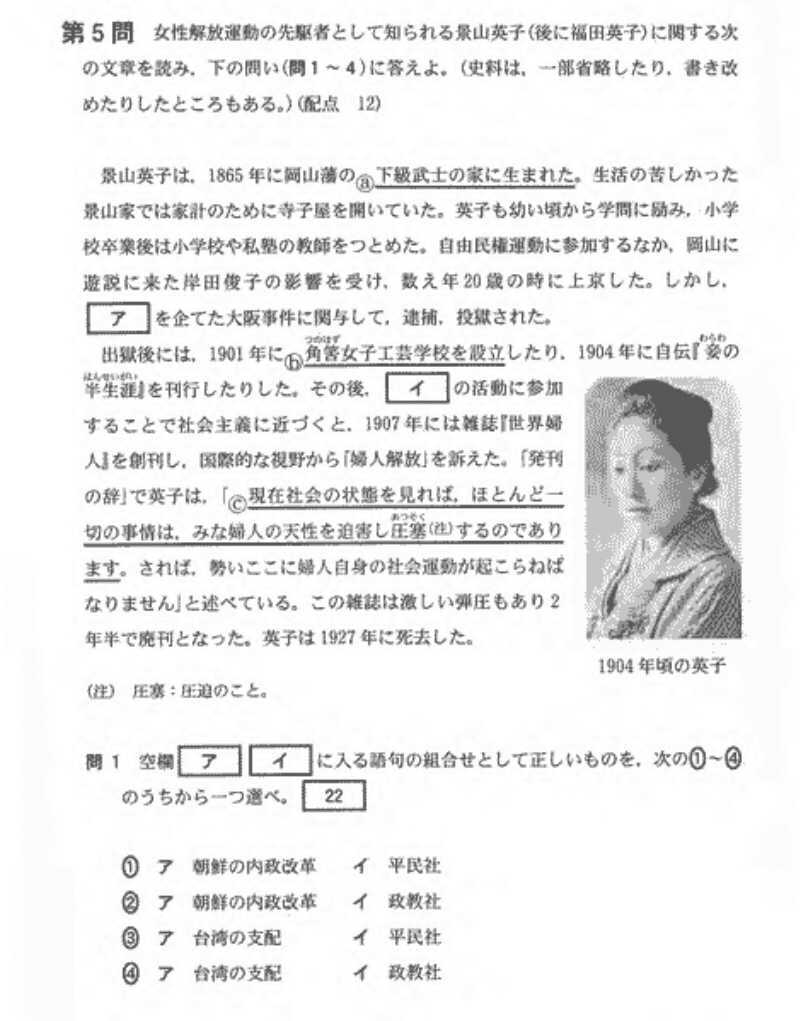 第5問 女性解放運動の先駆者として知られる景山英子(後に福田英子)に関する次
の文章を読み，下の問い(問1～4)に答えよ。(史料は，一部省略したり，書き改
めたりしたところもある。)(配点 12)
景山英子は，1865年に岡山藩のⓐ下級武士の家に生まれた。生活の苦しかった
景山家では家計のために寺子屋を開いていた。英子も幼い頃から学問に励み，小学
校卒業後は小学校や私塾の教師をつとめた。自由民権運動に参加するなか，岡山に
遊説に来た岸田俊子の影響を受け，数え年20歳の時に上京した。しかし，
ア を企てた大阪事件に関与して，逮捕，投獄された。
つのはず
わらわ
出獄後には，1901年にⓑ角筈女子工芸学校を設立したり，1904年に自伝『妾の
はんせいがい
半生涯』を刊行したりした。その後， イ の活動に参加
することで社会主義に近づくと，1907年には雑誌『世界婦
人』を創刊し，国際的な視野から「婦人解放」を訴えた。「発刊
の辞」で英子は，「ⓒ現在社会の状態を見れば，ほとんど一
あつそく
切の事情は，みな婦人の天性を迫害し圧塞(注)するのであり
ます。されば，勢いここに婦人自身の社会運動が起こらねば
なりません」と述べている。この雑誌は激しい弾圧もあり2
年半で廃刊となった。英子は1927年に死去した。
1904年頃の英子
(注) 圧塞：圧迫のこと。
問1 空欄 ア イ に入る語句の組合せとして正しいものを，次の①～④
のうちから一つ選べ。 22
① ア 朝鮮の内政改革 イ 平民社
② ア 朝鮮の内政改革 イ 政教社
③ ア 台湾の支配 イ 平民社
④ ア 台湾の支配 イ 政教社